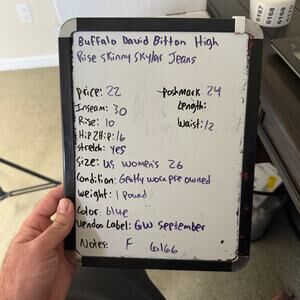 Buffalo David Bitton High
Rise Skinny Skylar Jeans
Price: 22
Poshmark 24
Inseam: 30
Length:
Rise: 10
Waist: 12
Hip 2 Hip: 16
Stretch: Yes
Size: US Women's 26
Condition: Gently worn pre owned
Weight: 1 Pound
Color: blue
Vendoo Label: GW September
Notes: F 6166
6167
6168
6169